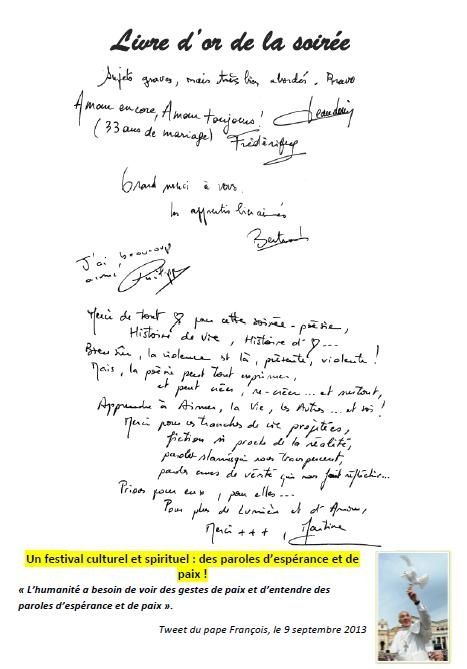 Livre d'or de la soirée
Sujets graves, mais très bien abordés. Bravo
Amour encore, Amour toujours !
(33 ans de mariage) Frédérique
Grand merci à vous
les apprentis bien aimés
Bertrand
J'ai beaucoup
aimé Philippe
Merci de tout ♡ pour cette soirée-poésie,
Histoire de vivre, Histoire d'♡...
Bien sûr, la violence est là, présente, violente !
Mais, la poésie peut tout exprimer,
et peut créer, re-créer... et surtout,
Apprendre à Aimer, la Vie, les Autres... et soi !
Merci pour ces tranches de vie projetées,
fiction si proche de la réalité,
paroles slamées qui nous transpercent,
paroles de vérité qui nous fait réfléchir...
Prions pour eux, pour elles...
Pour plus de Lumière et d'Amour,
Merci +++, Martine
Un festival culturel et spirituel : des paroles d'espérance et de
paix !
« L'humanité a besoin de voir des gestes de paix et d'entendre des
paroles d'espérance et de paix ».
Tweet du pape François, le 9 septembre 2013